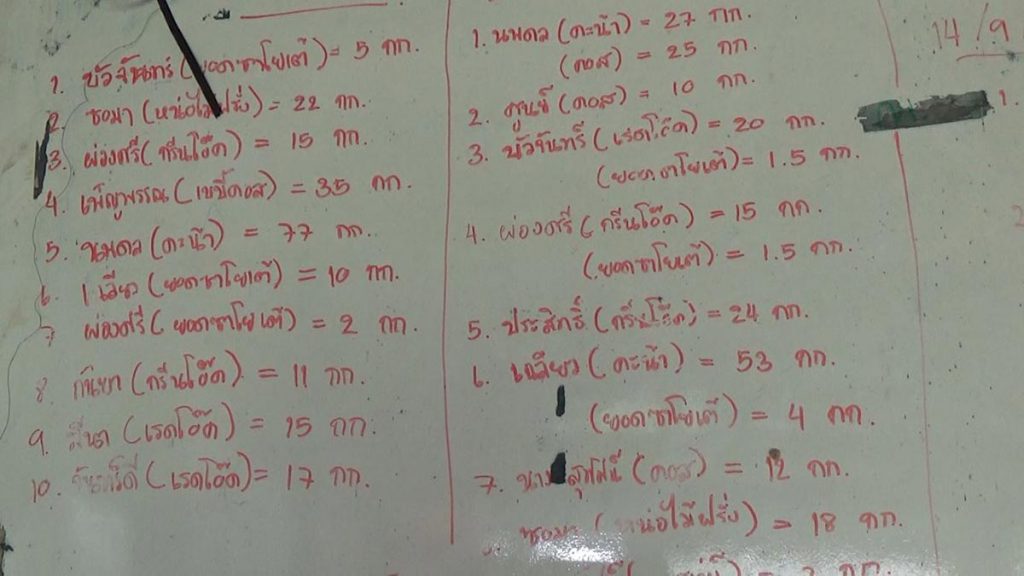 1. บัวจันทร์ (ยอดซาโยเต้) = 5 กก.
2. ชอมา (หน่อไม้ฝรั่ง) = 22 กก.
3. ผ่องศรี (กรีนโอ๊ค) = 15 กก.
4. เพ็ญพรรณ (เบบี้คอส) = 35 กก.
5. นพดล (คะน้า) = 77 กก.
6. (ยอดซาโยเต้) = 10 กก.
7 ผ่องศรี (ยอดซาโยเต้) = 2 กก.
8. กันยา (กรีนโอ๊ค) = 11 กก.
9. (เรดโอ๊ค) = 15 กก.
10. (เรดโอ๊ค) = 17 กก.
1. นพดล (คะน้า) = 27 กก.
(คอส) = 25 กก.
2. (คอส) = 10 กก.
3. บัวจันทร์ (เรดโอ๊ค) = 20 กก.
(ยอดซาโยเต้) = 1.5 กก.
4. ผ่องศรี (กรีนโอ๊ค) = 15 กก.
(ยอดซาโยเต้) = 1.5 กก.
5. ประสิทธิ์ (กรีนโอ๊ค) = 24 กก.
6. เฉลียว (คะน้า) = 53 กก.
(ยอดซาโยเต้) = 4 กก.
7. (คอส) = 12 กก.
ชอมา (หน่อไม้ฝรั่ง) = 18 กก.
14/9
1.